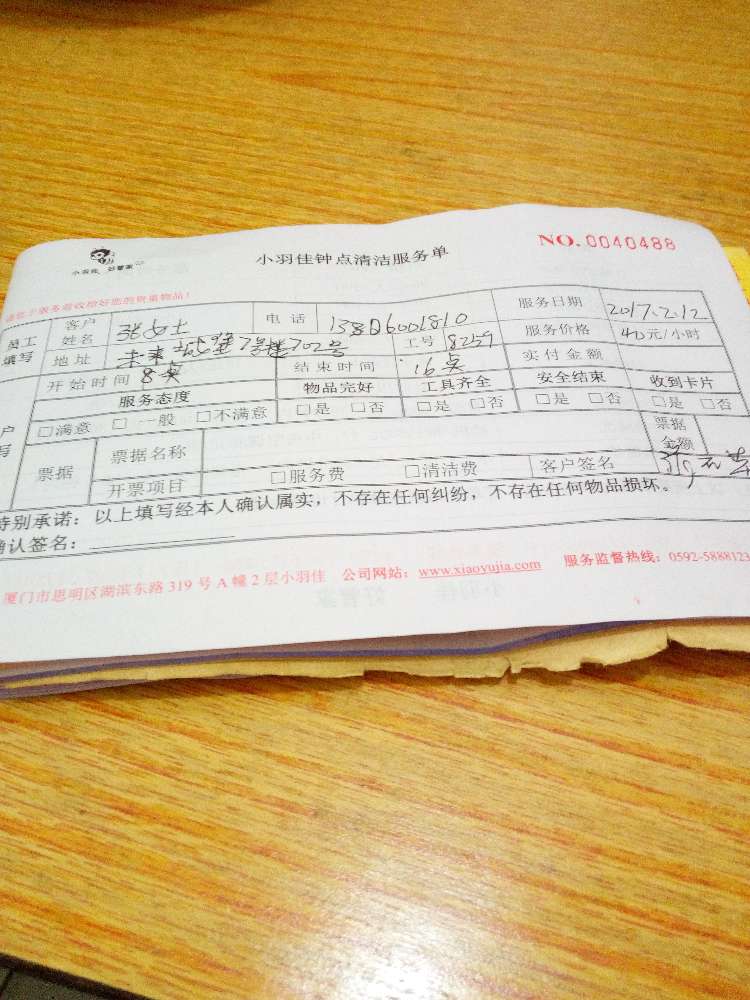 小羽佳 好管家
小羽佳钟点清洁服务单
NO.0040488
请在下服务前收拾好您的贵重物品!
员工填写 客户姓名 张女士 电话 13806001810 服务日期 2017.2.12
地址 未来城堡7号楼702号 工号 8259 服务价格 40元/小时
开始时间 8点 结束时间 16点 实付金额
服务态度 物品完好 工具齐全 安全结束 收到卡片
□满意 □一般 □不满意 □是 □否 □是 □否 □是 □否 □是 □否
票据 票据名称 票据金额
开票项目 □服务费 □清洁费 客户签名
特别承诺：以上填写经本人确认属实，不存在任何纠纷，不存在任何物品损坏。
确认签名：
厦门市思明区湖滨东路319号A幢2层小羽佳 公司网站：www.xiaoyujia.com 服务监督热线：0592-5888123